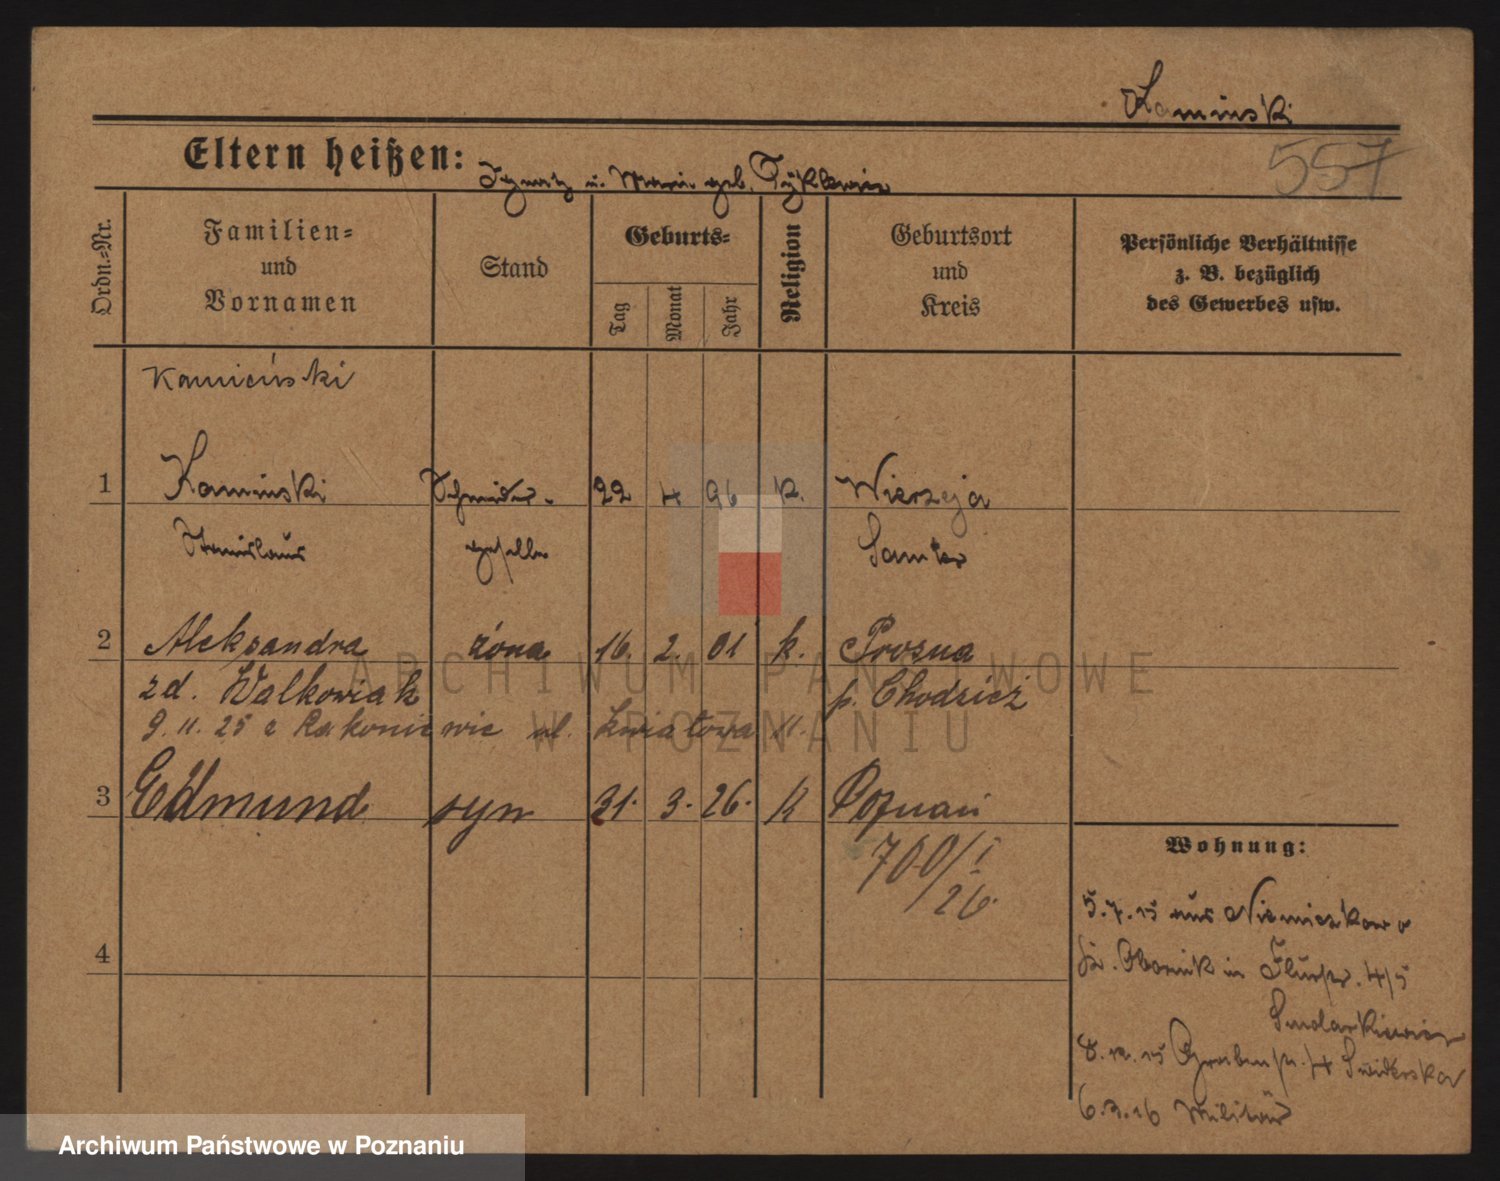 Kaminski
Eltern heißen: Ignatz u. Marie geb. Tyklewicz
557
Ordn.-Nr.
Familien-
und
Vornamen
Stand
Geburts-
Tag
Monat
Jahr
Religion
Geburtsort
und
Kreis
Persönliche Verhältnisse
z. B. bezüglich
des Gewerbes usw.
Kamiński
1 Kaminski Schneider- 22 4 96 k. Wierzeja
Stanislaus geselle Samter
2 Aleksandra żona 16. 2. 01 k. Prosna
zd. Walkowiak p. Chodzież
9.11.25 z Rakoniewic ul. Kwiatowa 11.
3 Edmund syn 31. 3. 26. k Poznań
700/I
26.
4
Wohnung:
5.7.15 aus Niemieczkowo
Kr. Obornik in Flurstr. 4/5
Smolarkiewicz
8.12.15 Grabenstr. 4 Swiderska
6.3.16 Militär
ARCHIWUM PAŃSTWOWE
W POZNANIU
Archiwum Państwowe w Poznaniu